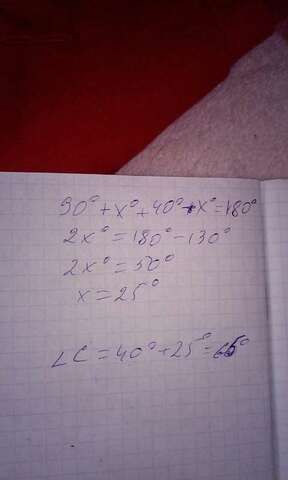 90°+x°+40°+x°=180°
2x°=180°-130°
2x°=50°
x=25°
∠C=40°+25°=65°